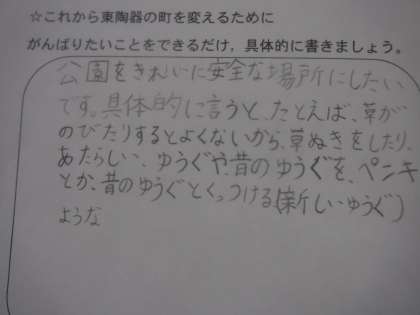 ☆これから東陶器の町を変えるために
がんばりたいことをできるだけ，具体的に書きましょう。
公園をきれいに安全な場所にしたい
です。具体的に言うと、たとえば、草が
のびたりするとよくないから、草ぬきをしたり、
あたらしい、ゆうぐや、昔のゆうぐを、ペンキ
とか、昔のゆうぐとくっつける(新しいゆうぐ)
ような